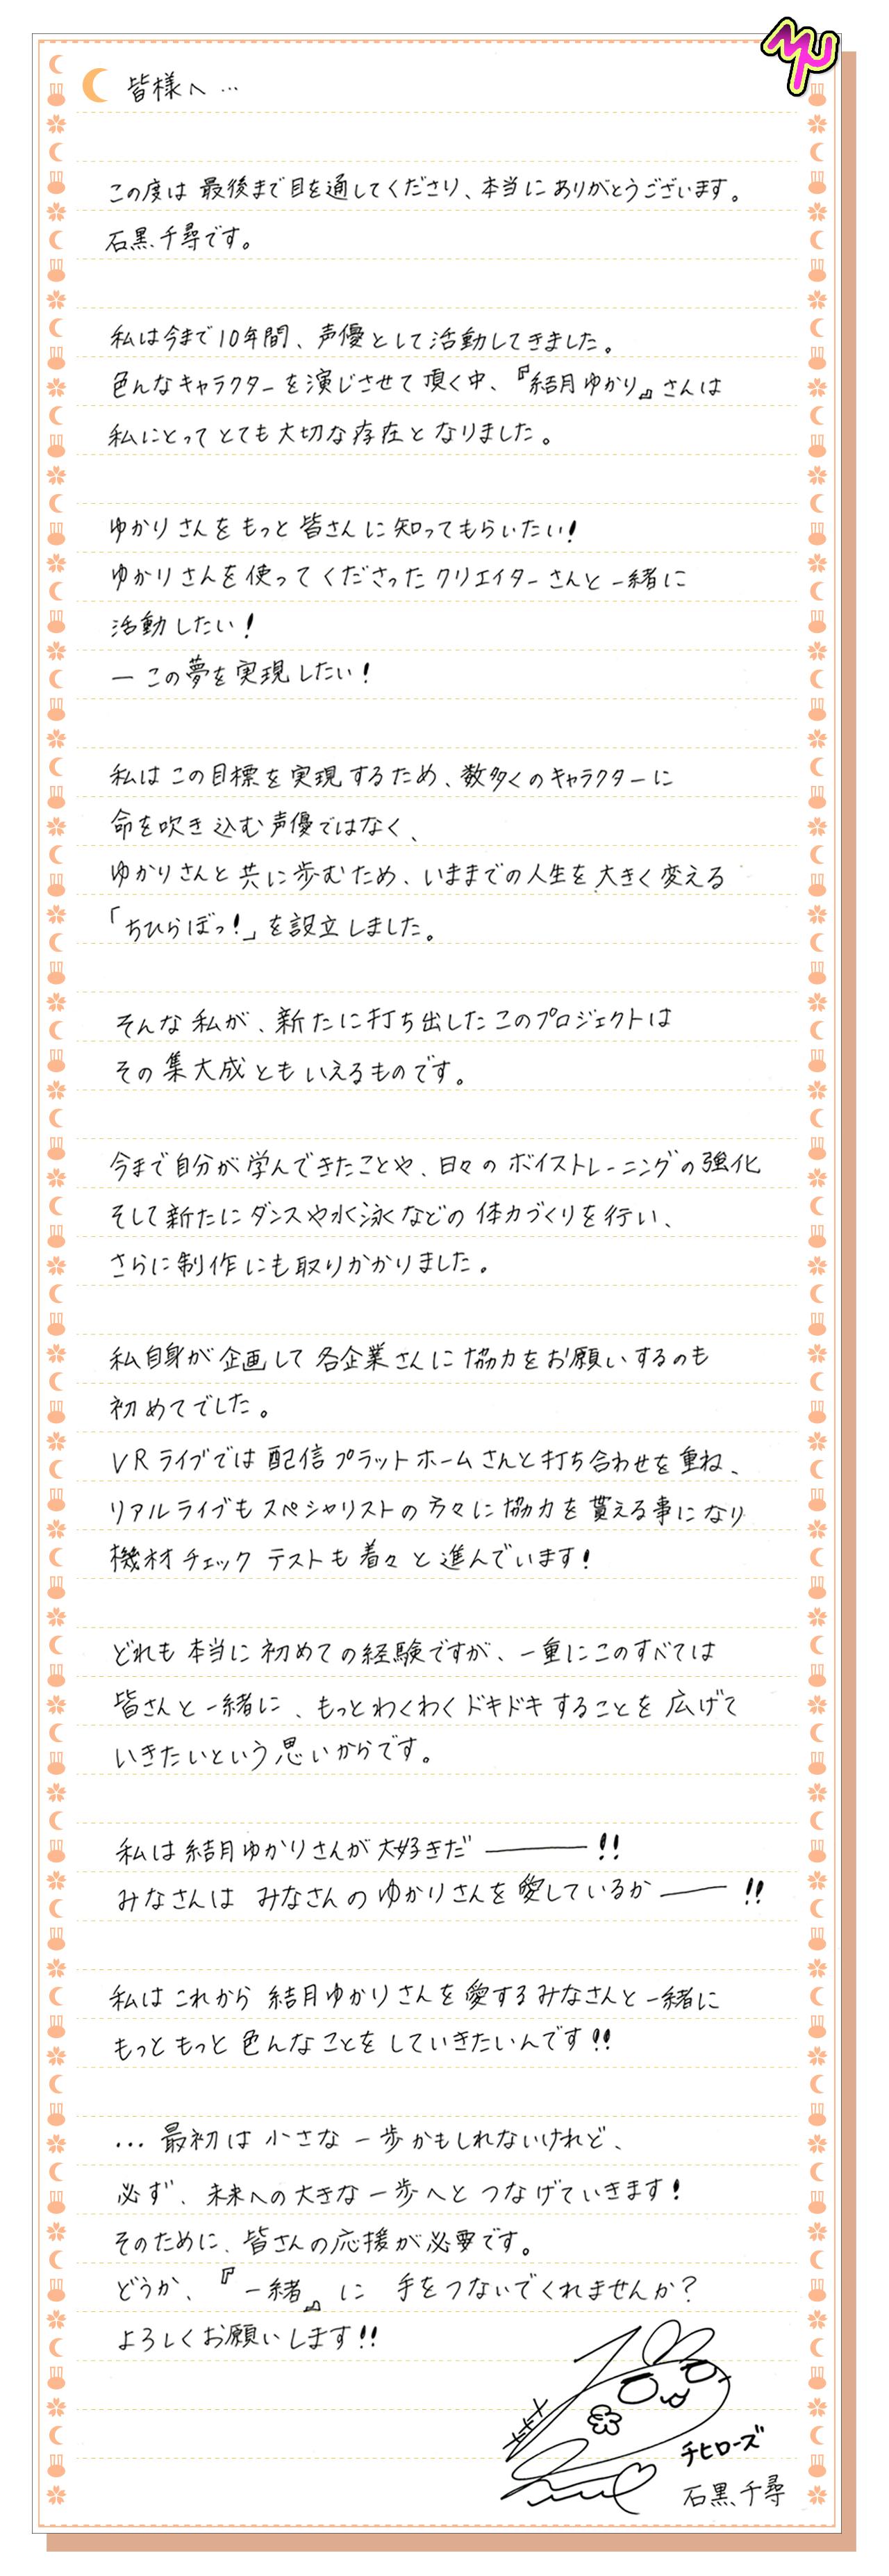 皆様へ…
この度は 最後まで目を通してくださり、本当に ありがとうございます。
石黒千尋です。
私は今まで10年間、声優として活動してきました。
色んなキャラクターを演じさせて頂く中、『結月ゆかり』さんは
私にとって とても大切な存在と なりました。
ゆかりさんを もっと皆さんに知ってもらいたい!
ゆかりさんを使ってくださったクリエイターさんと一緒に
活動したい!
ーこの夢を実現したい!
私はこの目標を実現するため、数多くのキャラクターに
命を吹き込む声優ではなく、
ゆかりさんと共に歩むため、いままでの人生を大きく変える
「ちひらぼっ!」を設立しました。
そんな私が、新たに打ち出したこのプロジェクトは
その集大成ともいえるものです。
今まで自分が学んできたことや、日々のボイストレーニングの強化
そして新たにダンスや水泳などの体力づくりを行い、
さらに制作にも取りかかりました。
私自身が企画して各企業さんに協力をお願いするのも
初めてでした。
VRライブでは配信プラットホームさんと打ち合わせを重ね、
リアルライブもスペシャリストの方々に協力を貰える事になり
機材チェック テストも着々と進んでいます!
どれも本当に初めての経験ですが、一重にこのすべては
皆さんと一緒に、もっとわくわくドキドキすることを広げて
いきたいという思いからです。
私は結月ゆかりさんが大好きだ――――!!
みなさんは みなさんのゆかりさんを愛しているか――!!
私はこれから 結月ゆかりさんを愛するみなさんと一緒に
もっともっと色んなことをしていきたいんです!!
…最初は小さな一歩かもしれないけれど、
必ず、未来への大きな一歩へとつなげていきます!
そのために、皆さんの応援が必要です。
どうか、『一緒』に 手をつないでくれませんか?
よろしくお願いします!!
チヒローズ
石黒千尋